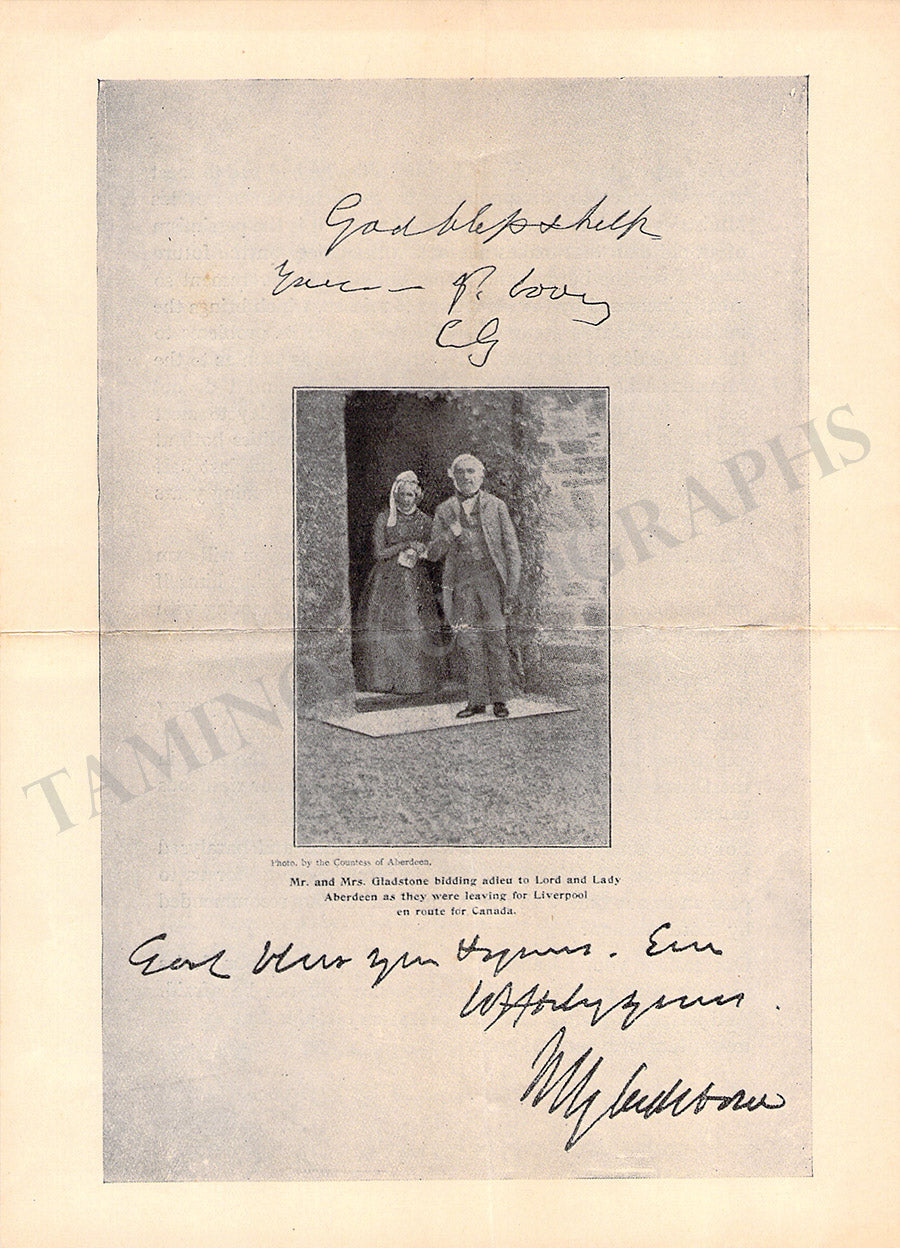 God bless & help
CG
TAMINO AUTOGRAPHS
Photo. by the Countess of Aberdeen.
Mr. and Mrs. Gladstone bidding adieu to Lord and Lady
Aberdeen as they were leaving for Liverpool
en route for Canada.
God bless you & yours. Ever
yours.
WEGladstone